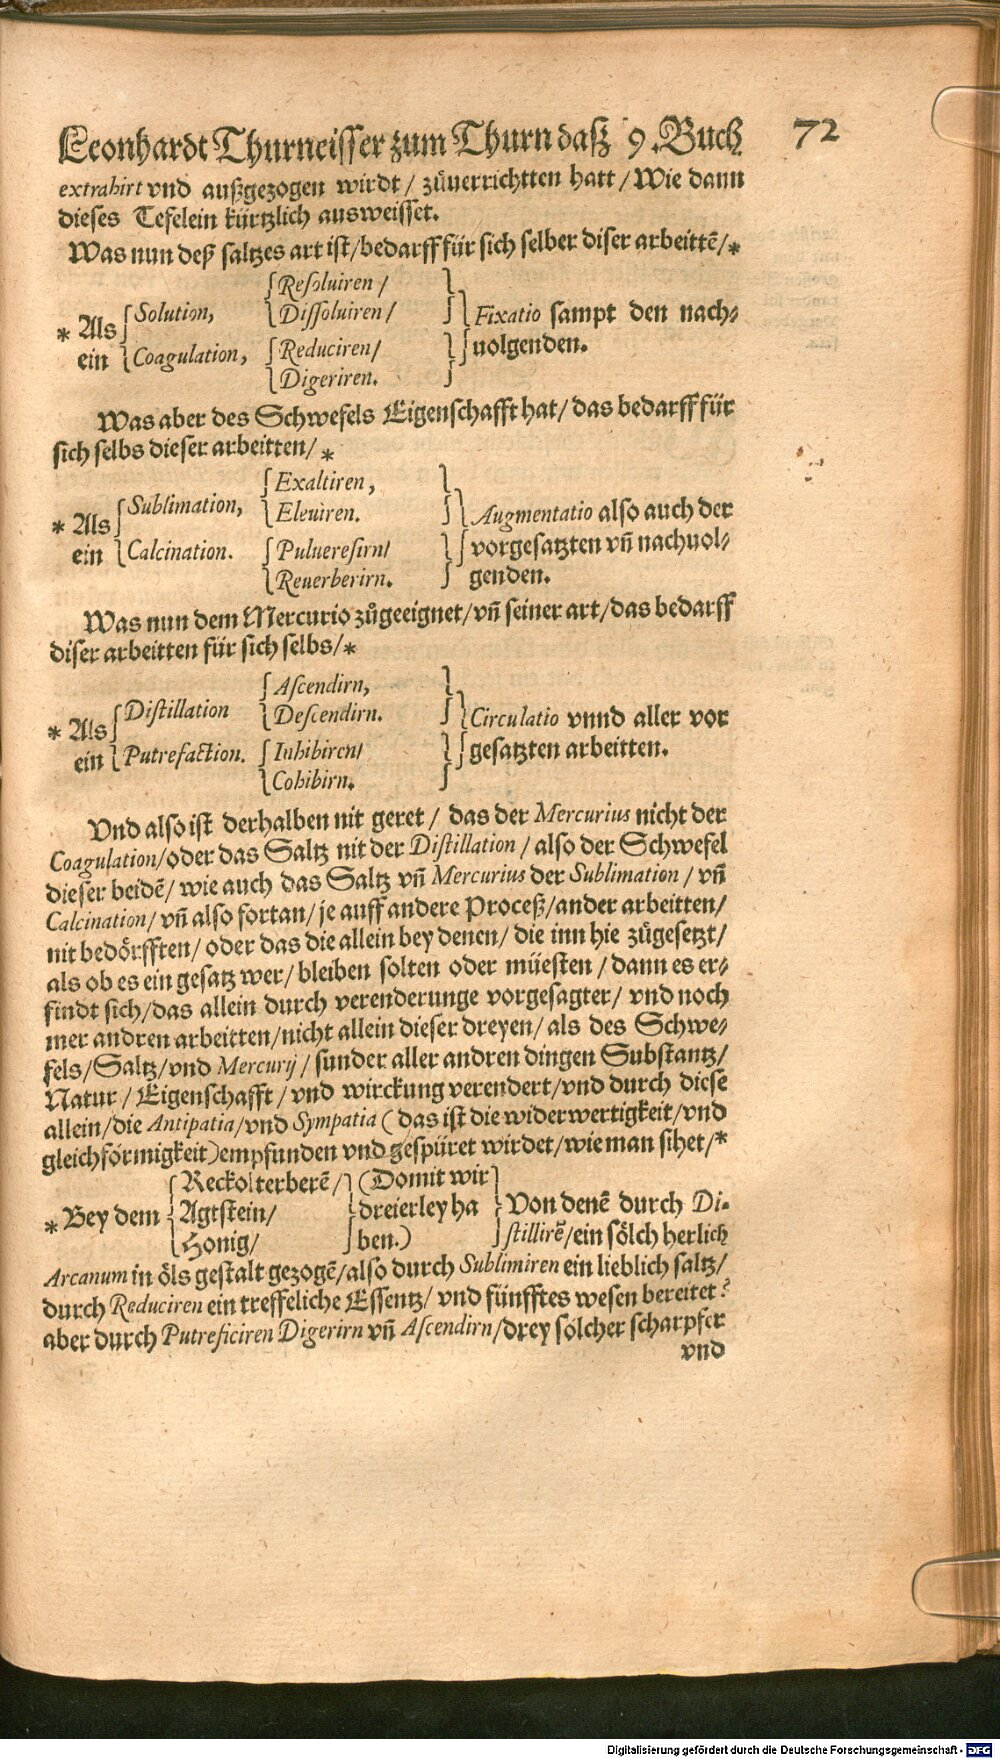 Leonhardt Thurneisser zum Thurn daß 9. Buch 72
extrahirt vnd außgezogen wirdt / zůuerrichtten hatt / Wie dann
dieses Tefelein kürtzlich ausweisset.
Was nun deß saltzes art ist / bedarff für sich selber diser arbeittē / *
* Als ein
Solution,
Coagulation,
Resoluiren /
Dissoluiren /
Reduciren /
Digeriren.
Fixatio sampt den nach⸗
uolgenden.
Was aber des Schwefels Eigenschafft hat / das bedarff für
sich selbs dieser arbeitten / *
* Als ein
Sublimation,
Calcination.
Exaltiren,
Eleuiren.
Pulueresirn /
Reuerberirn.
Augmentatio also auch der
vorgesatzten vñ nachuol⸗
genden.
Was nun dem Mercurio zůgeeignet / vñ seiner art / das bedarff
diser arbeitten für sich selbs / *
* Als ein
Distillation
Putrefaction.
Ascendirn,
Descendirn.
Inhibiren /
Cohibirn.
Circulatio vnnd aller vor
gesatzten arbeitten.
Vnd also ist derhalben nit geret / das der Mercurius nicht der
Coagulation / oder das Saltz nit der Distillation / also der Schwefel
dieser beidē / wie auch das Saltz vñ Mercurius der Sublimation / vñ
Calcination / vñ also fortan / je auff andere Proceß / ander arbeitten /
nit bedörfften / oder das die allein bey denen / die inn hie zůgesetzt /
als ob es ein gesatz wer / bleiben solten oder müesten / dann es er⸗
findt sich / das allein durch verenderunge vorgesagter / vnd noch
mer andren arbeitten / nicht allein dieser dreyen / als des Schwe⸗
fels / Saltz / vnd Mercurij / sunder aller andren dingen Substantz /
Natur / Eigenschafft / vnd wirckung verendert / vnd durch diese
allein / die Antipatia / vnd Sympatia ( das ist die widerwertigkeit / vnd
gleichförmigkeit ) empfunden vnd gespüret wirdet / wie man sihet / *
* Bey dem
Reckolterberē /
Agtstein /
Honig /
( Domit wir
dreierley ha
ben. )
Von denē durch Di-
stillirē / ein sölch herlich
Arcanum in öls gestalt gezogē / also durch Sublimiren ein lieblich saltz /
durch Reduciren ein treffeliche Essentz / vnd fünfftes wesen bereitet ?
aber durch Putreficiren Digerirn vñ Ascendirn / drey solcher scharpfer
vnd
Digitalisierung gefördert durch die Deutsche Forschungsgemeinschaft - DFG